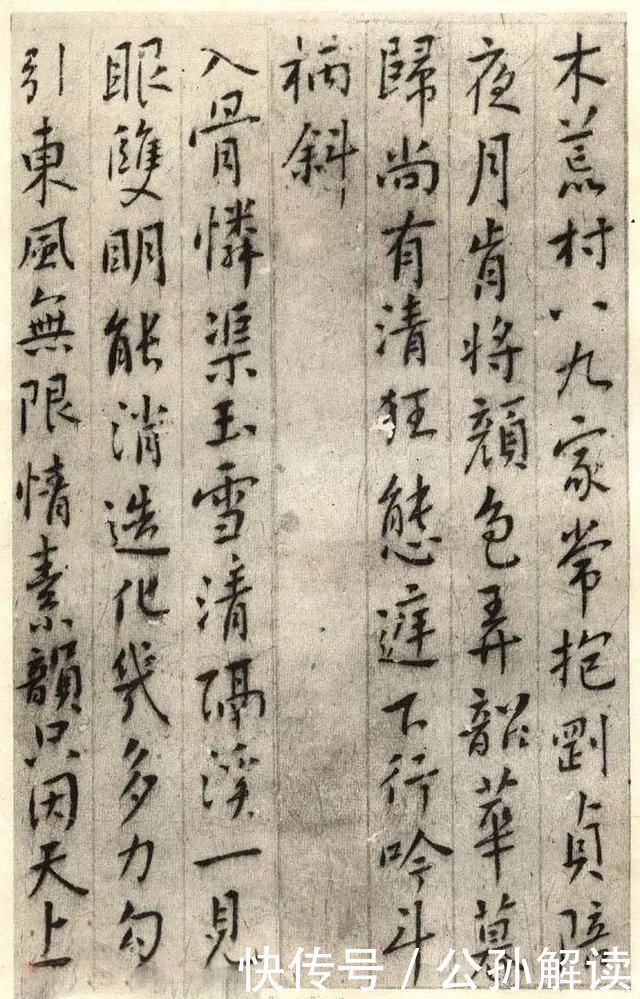 木荒村八九家常抱剛貞陪
夜月肯將顔色弄韶華暮
歸尚有清狂態庭下行吟斗
柄斜
入骨憐渠玉雪清隔溪一見
眼雙明能消造化幾多力勾
引東風無限情素韻只因天上
快传号 / 公孙解读